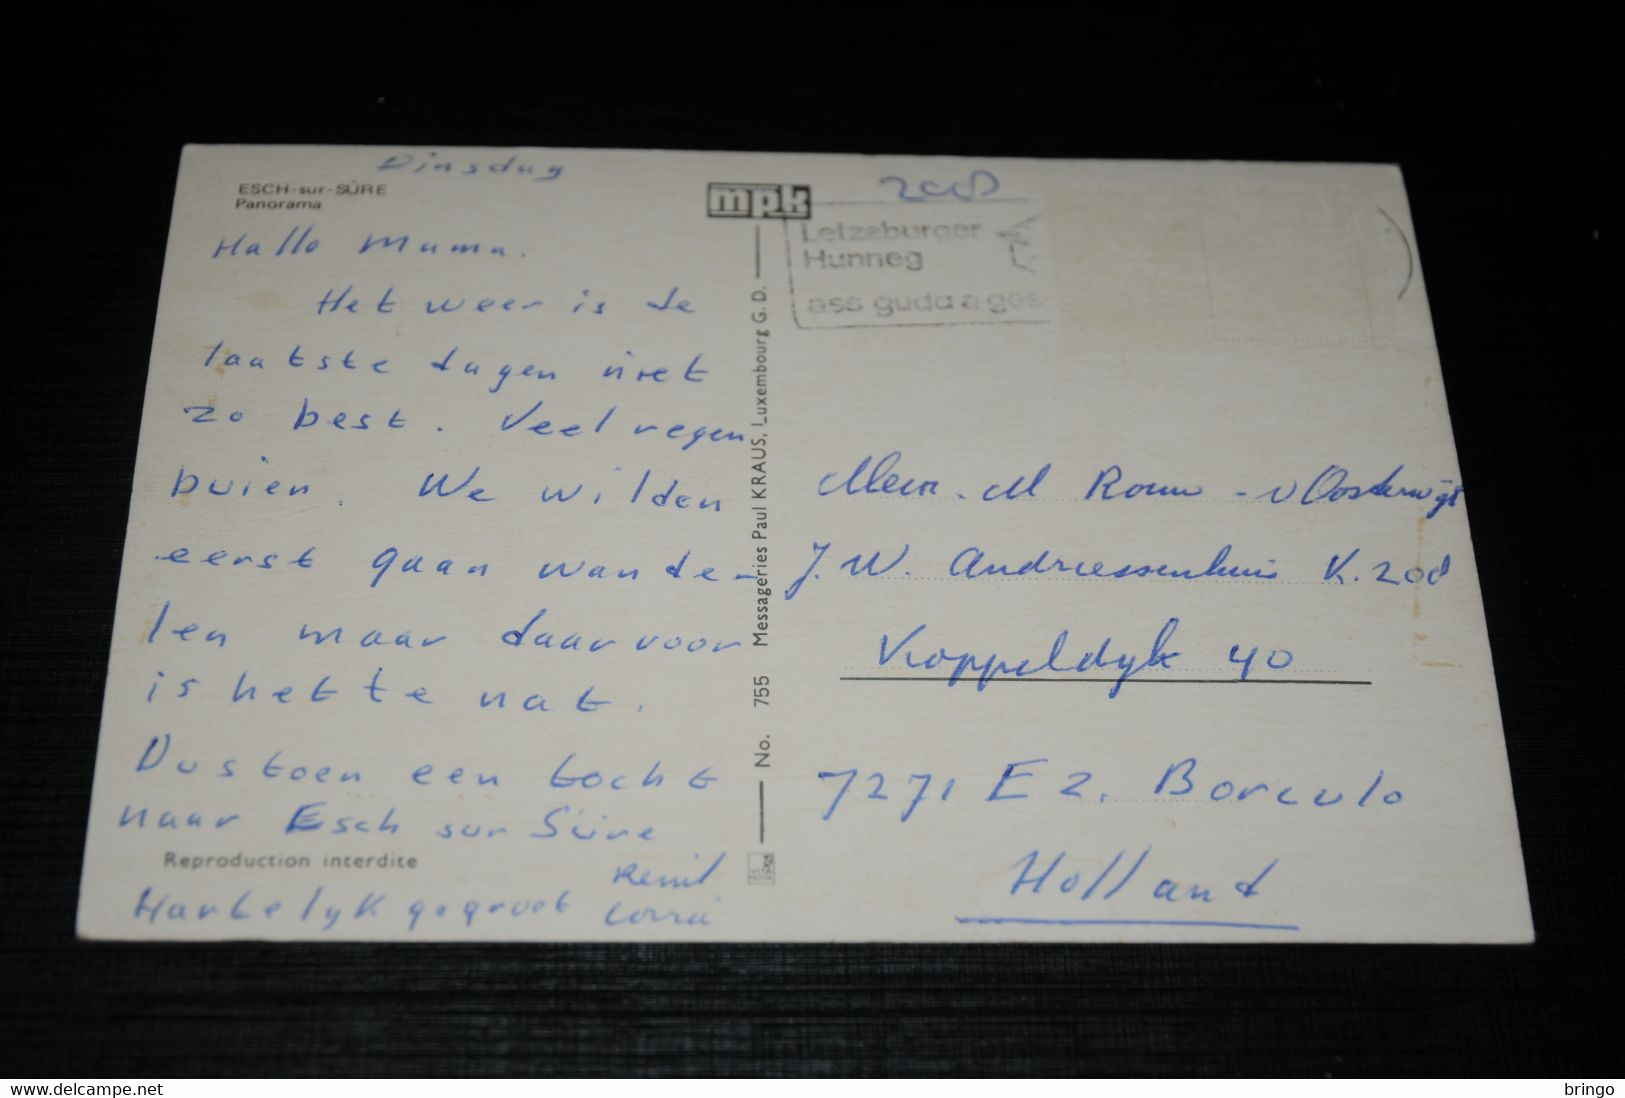 Dinsdag
ESCH-sur-SÛRE
Panorama
Hallo Mama.
Het weer is de
laatste dagen niet
zo best. Veel regen
buien. We wilden
eerst gaan wande-
len maar daarvoor
is het te nat.
Dus toen een tocht
naar Esch sur Sûre
Reproduction interdite
Hartelyk gegroet
mpk
No. 755 Messageries Paul KRAUS, Luxembourg G. D.
Letzeburger
Hunneg
ass gudd a ges
M
J. W. Andriessenhuis K. 208
40
7271 EZ. Borculo
Holland
www.delcampe.net
bringo